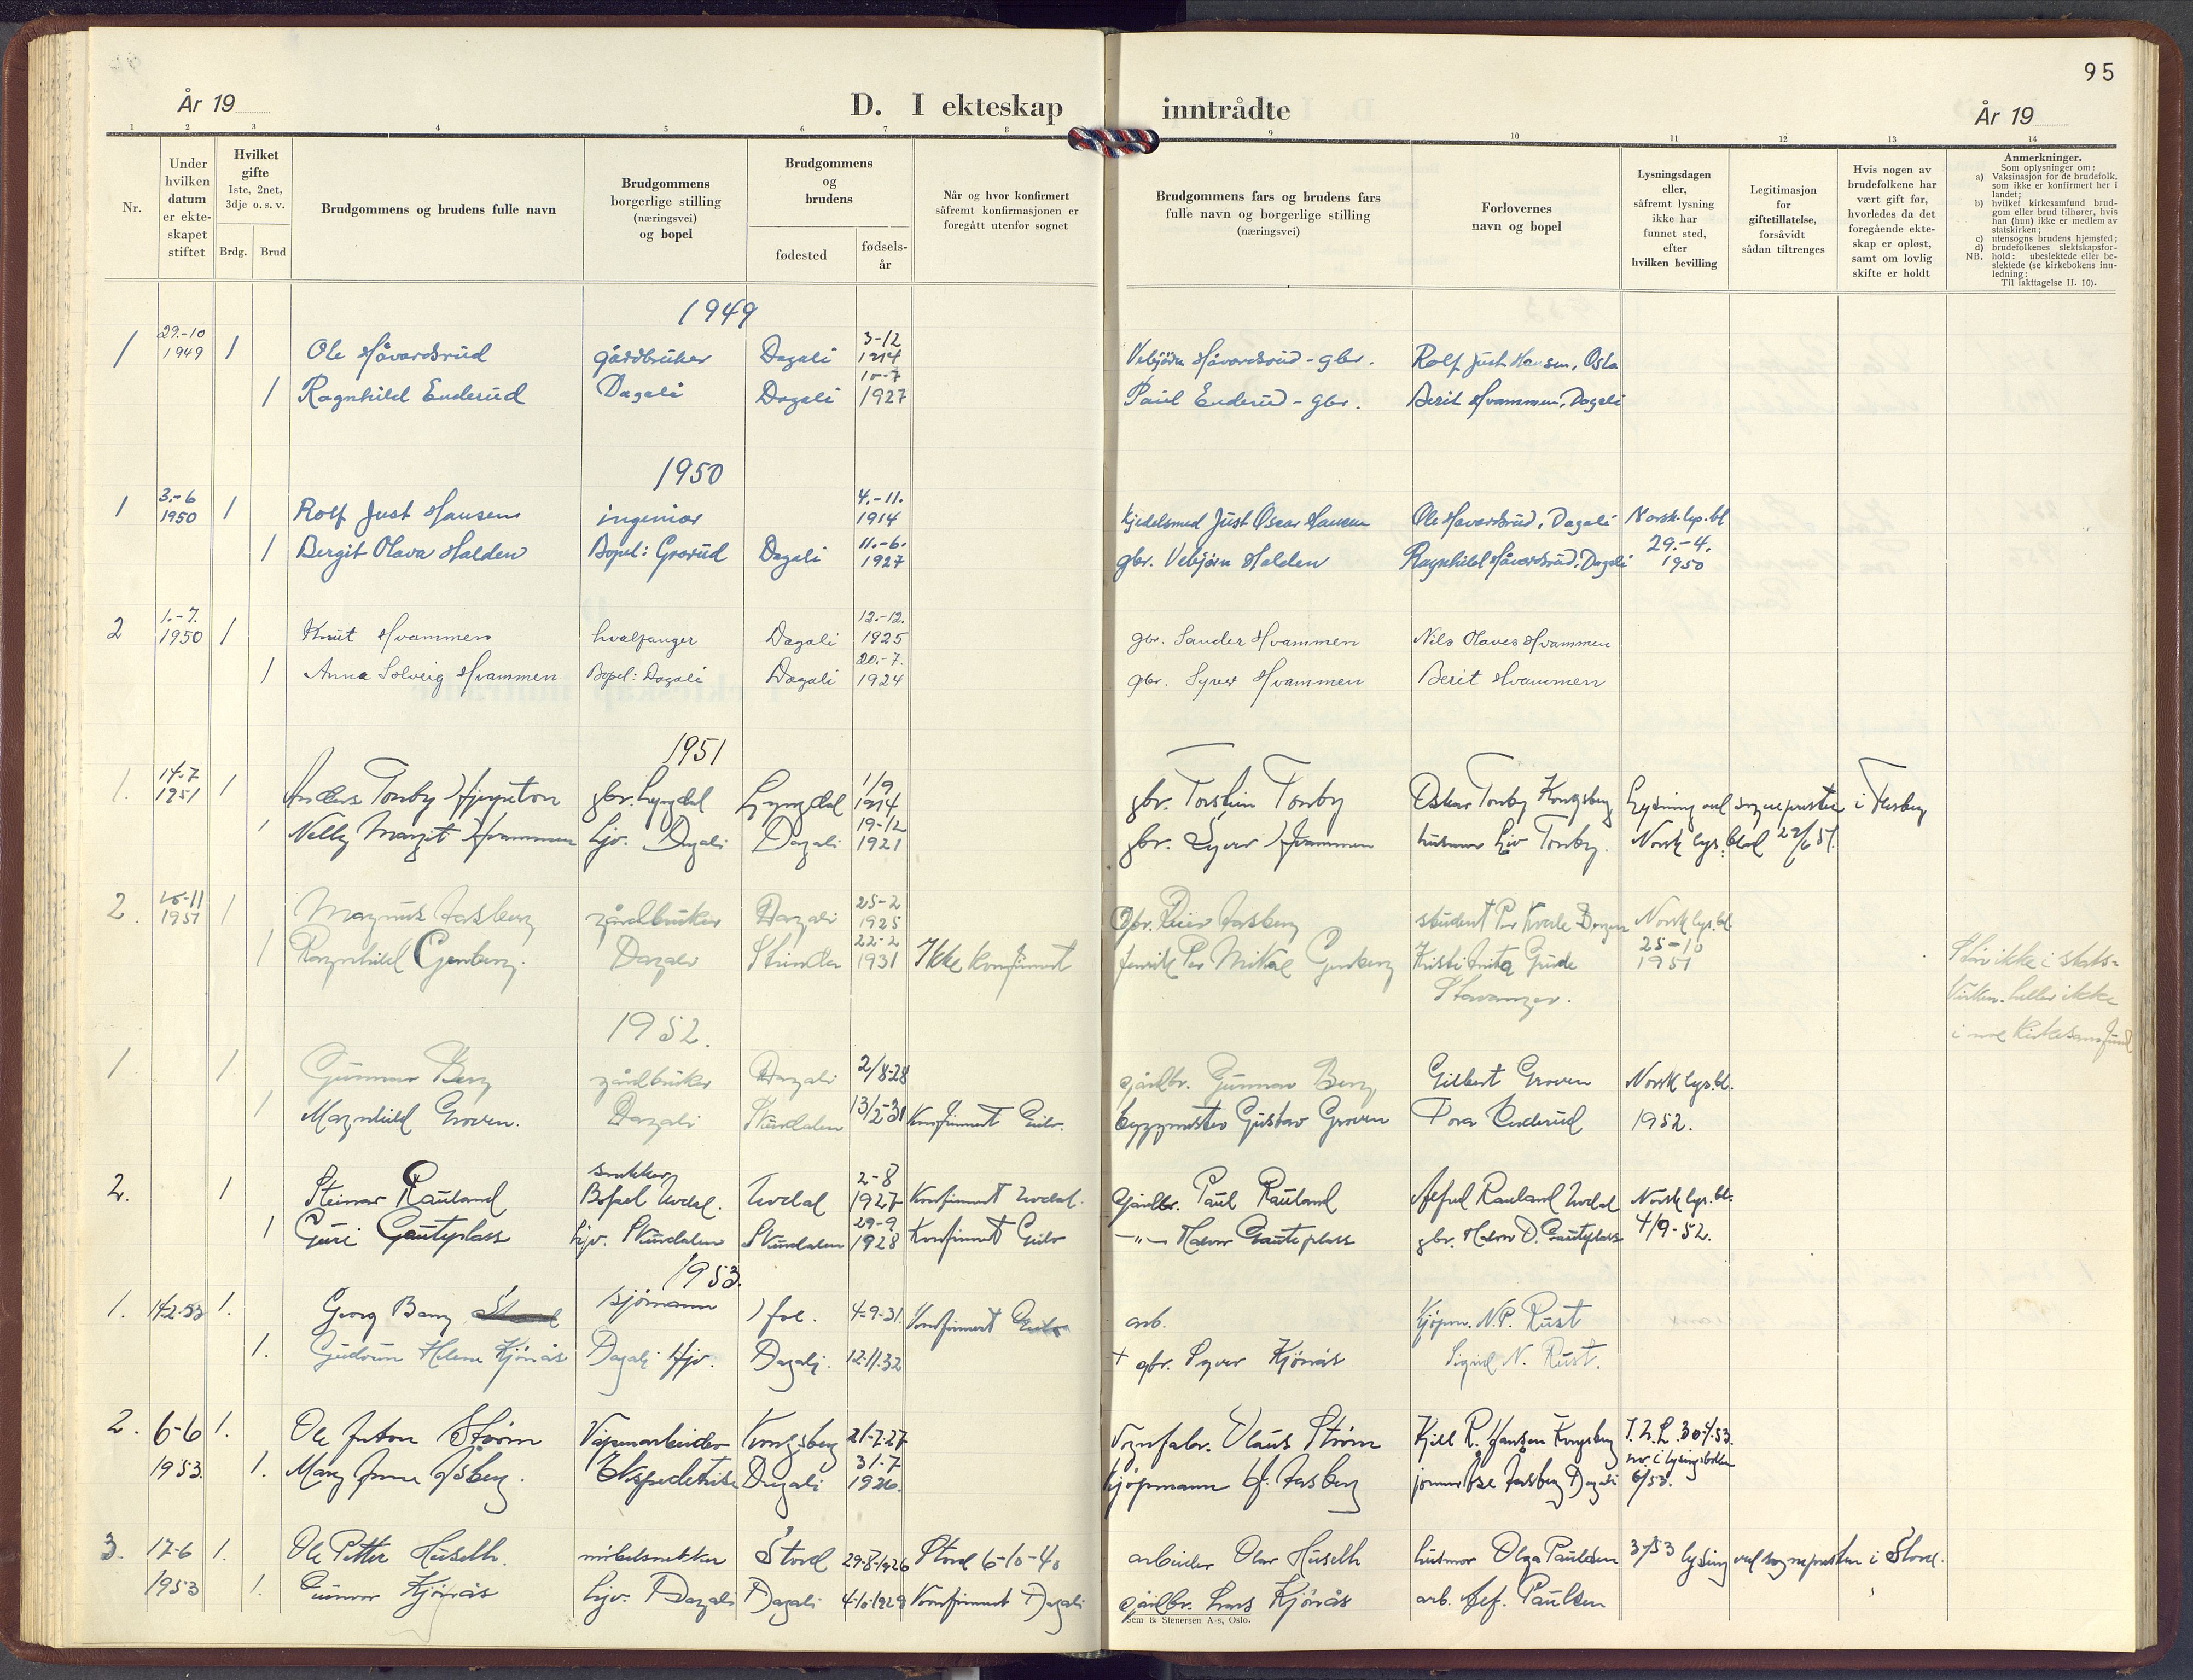 95
År 19
D. I ekteskap inntrådte
År 19
1 2 3 4 5 6 7 8 9 10 11 12 13 14
Nr.
Under hvilken datum er ekte- skapet stiftet
Hvilket gifte 1ste, 2net, 3dje o. s. v.
Brdg. Brud
Brudgommens og brudens fulle navn
Brudgommens borgerlige stilling (næringsvei) og bopel
Brudgommens og brudens
fødested
fødsels- år
Når og hvor konfirmert såfremt konfirmasjonen er foregått utenfor sognet
Brudgommens fars og brudens fars fulle navn og borgerlige stilling (næringsvei)
Forlovernes navn og bopel
Lysningsdagen eller, såfremt lysning ikke har funnet sted, efter hvilken bevilling
Legitimasjon for giftetillatelse, forsåvidt sådan tiltrenges
Hvis nogen av brudefolkene har vært gift før, hvorledes da det foregående ekte- skap er opløst, samt om lovlig skifte er holdt
Anmerkninger.
Som oplysninger om:
a) Vaksinasjon for de brudefolk, som ikke er konfirmert her i landet;
b) hvilket kirkesamfund brud- gom eller brud tilhører, hvis han (hun) ikke er medlem av statskirken;
c) utensogns brudens hjemsted;
d) brudefolkenes slektskapsfor- hold: ubeslektede eller be- slektede (se kirkebokens inn- ledning:
NB.
Til iakttagelse II. 10).
1949
1 29.-10 1949 1 Ole Håvardsrud gårdbruker Dagali 3-12 1914 Vebjörn Håvardsrud - gbr. Rolf Just Hansen, Oslo
1 Ragnhild Enderud Dagali Dagali 1927 Paul Enderud - gbr. Berit Hvammen, Dagali
1950
1 3.-6 1950 1 Rolf Just Hansen ingeniør 4.-11. 1914 Kjedelsmed Just Oscar Hansen Ole Håvardsrud, Dagali Norsk. lys. bl
1 Bergit Olava Halden Bopel: Grorud Dagali 11.-6. 1927 gbr. Vebjørn Halden Ragnhild Håvardsrud, Dagali 29.-4. 1950
2 1.-7. 1950 1 Knut Hvammen hvalfanger Dagali 12.-12. 1925 gbr. Sander Hvammen Nils Olaves Hvammen
1 Anna Solveig Hvammen Bopel: Dagali Dagali 20.-7. 1924 gbr. Syver Hvammen Berit Hvammen
1951
1. 14-7 1951 1 Anders Tonby gbr. Lyngdal Lyngdal 1/9 1914 gbr. Torstein Tonby Oskar Tonby Kongsberg Lysning ved sogneprestens i Flesberg
1 Nelly Margit Hvammen hjv. Dagali Dagali 19-12 1921 gbr. Syver Hvammen husmor Liv Tonby. Norsk lys. blad 22/6 51.
2. 1951 1 Magnus Aasberg gårdbruker Dagali 25-2 1925 Gbr. Aasberg student Per Kvale Bergen Norsk lys. bl.
1 Ragnhild Dagali 22-2 1931 Ikke konfirmert Per Mikal Kristi Anita Grude 25-10 1951
Stavanger.
Står ikke i stats-
kirken. heller ikke
i noe kirkesamfund
1952.
1 1 Gunnar Berg gårdbruker Dagali 2/8-28 gårdbr. Gunnar Berg Gilbert Groven Norsk lys. bl.
1 Magnhild Groven. Dagali Skurdalen 13/2-31 Konfirmert Geilo. byggmester Gustav Groven Tora Enderud 1952.
2. 1 Steinar Rauland snekker Bopel Uvdal. Uvdal 2-8 1927 Konfirmert Uvdal. Gårdbr. Paul Rauland Alfred Rauland Uvdal Norsk lys. bl.
1 Guri Gauteplass hjv. Skurdalen Skurdalen 29-9 1928 Konfirmert Geilo -"- Halvor Gauteplass gbr. Halvor O. Gauteplass 4/9-52.
1953.
1. 14-2-53 1. Georg Berg sjömann Hol. 4-9-31. Konfirmert Geilo arb. Kjöpm. N.P. Rust
1. Gudrun Helene Kjönås Dagali Hjv. Dagali. 12-11-32 + gbr. Syver Kjönås Sigrid N. Rust.
2. 6-6 1. Ole Anton Ström Våpenarbeider Kongsberg 21-7-27 Vognfabr. Olaus Ström Kjell R. Hansen Kongsberg
1953. 1. Mary Anne Åsberg. Ekspeditrise Dagali 31-7 1926. Kjöpmann Aasberg Åse Aasberg Dagali 6/53.
3. 17-6 1. Ole Petter Huseth. möbelsnekker Stord 29-8-1926 Stord 6-10-40 arbeider Olav Huseth husmor Olga Paulsen 3/53 lysing ved sognepresten i Stord.
1953 1. Gunvor Kjönås hjv. Dagali Dagali 4-10-1929 Konfirmert Dagali gårdbr. Lars Kjönås arb. Paulsen
Sem & Stenersen A-s, Oslo.